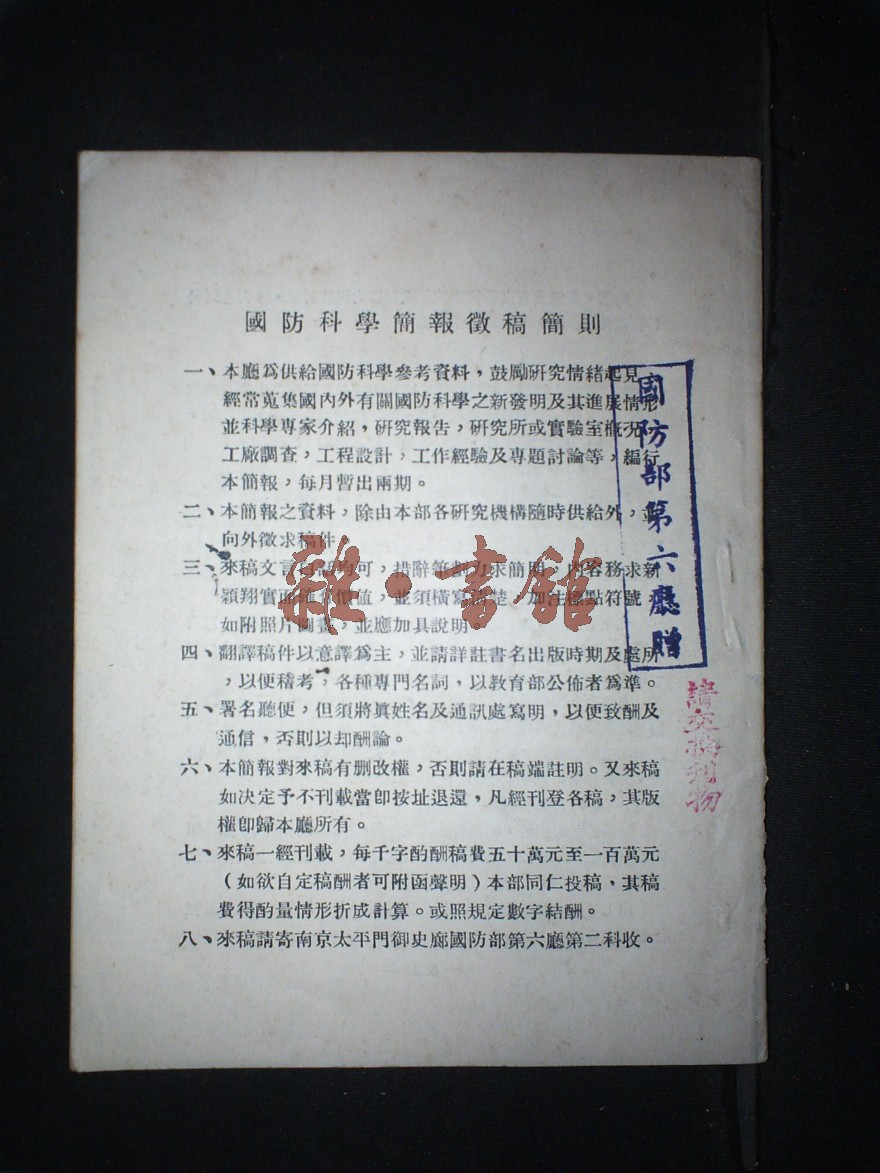 國防科學簡報徵稿簡則
一、本廳爲供給國防科學參考資料，鼓勵研究情緒起見
經常蒐集國內外有關國防科學之新發明及其進展情形
並科學專家介紹，研究報告，研究所或實驗室概況，
工廠調查，工程設計，工作經驗及專題討論等，編行
本簡報，每月暫出兩期。
二、本簡報之資料，除由本部各研究機構隨時供給外，並
向外徵求稿件
三、來稿文言白話均可，措辭力求簡明，內容務求新
穎翔實而確有價值，並須橫寫清楚，加注標點符號，
如附照片圖畫，並應加具說明
四、翻譯稿件以意譯爲主，並請詳註書名出版時期及處所
，以便稽考，各種專門名詞，以教育部公佈者爲準。
五、署名聽便，但須將眞姓名及通訊處寫明，以便致酬及
通信，否則以却酬論。
六、本簡報對來稿有删改權，否則請在稿端註明。又來稿
如决定予不刊載當卽按址退還，凡經刊登各稿，其版
權卽歸本廳所有。
七、來稿一經刊載，每千字酌酬稿費五十萬元至一百萬元
（如欲自定稿酬者可附函聲明）本部同仁投稿，其稿
費得酌量情形折成計算。或照規定數字結酬。
八、來稿請寄南京太平門御史廊國防部第六廳第二科收。
國防部第六廳贈
請交換刊物
雜·書館